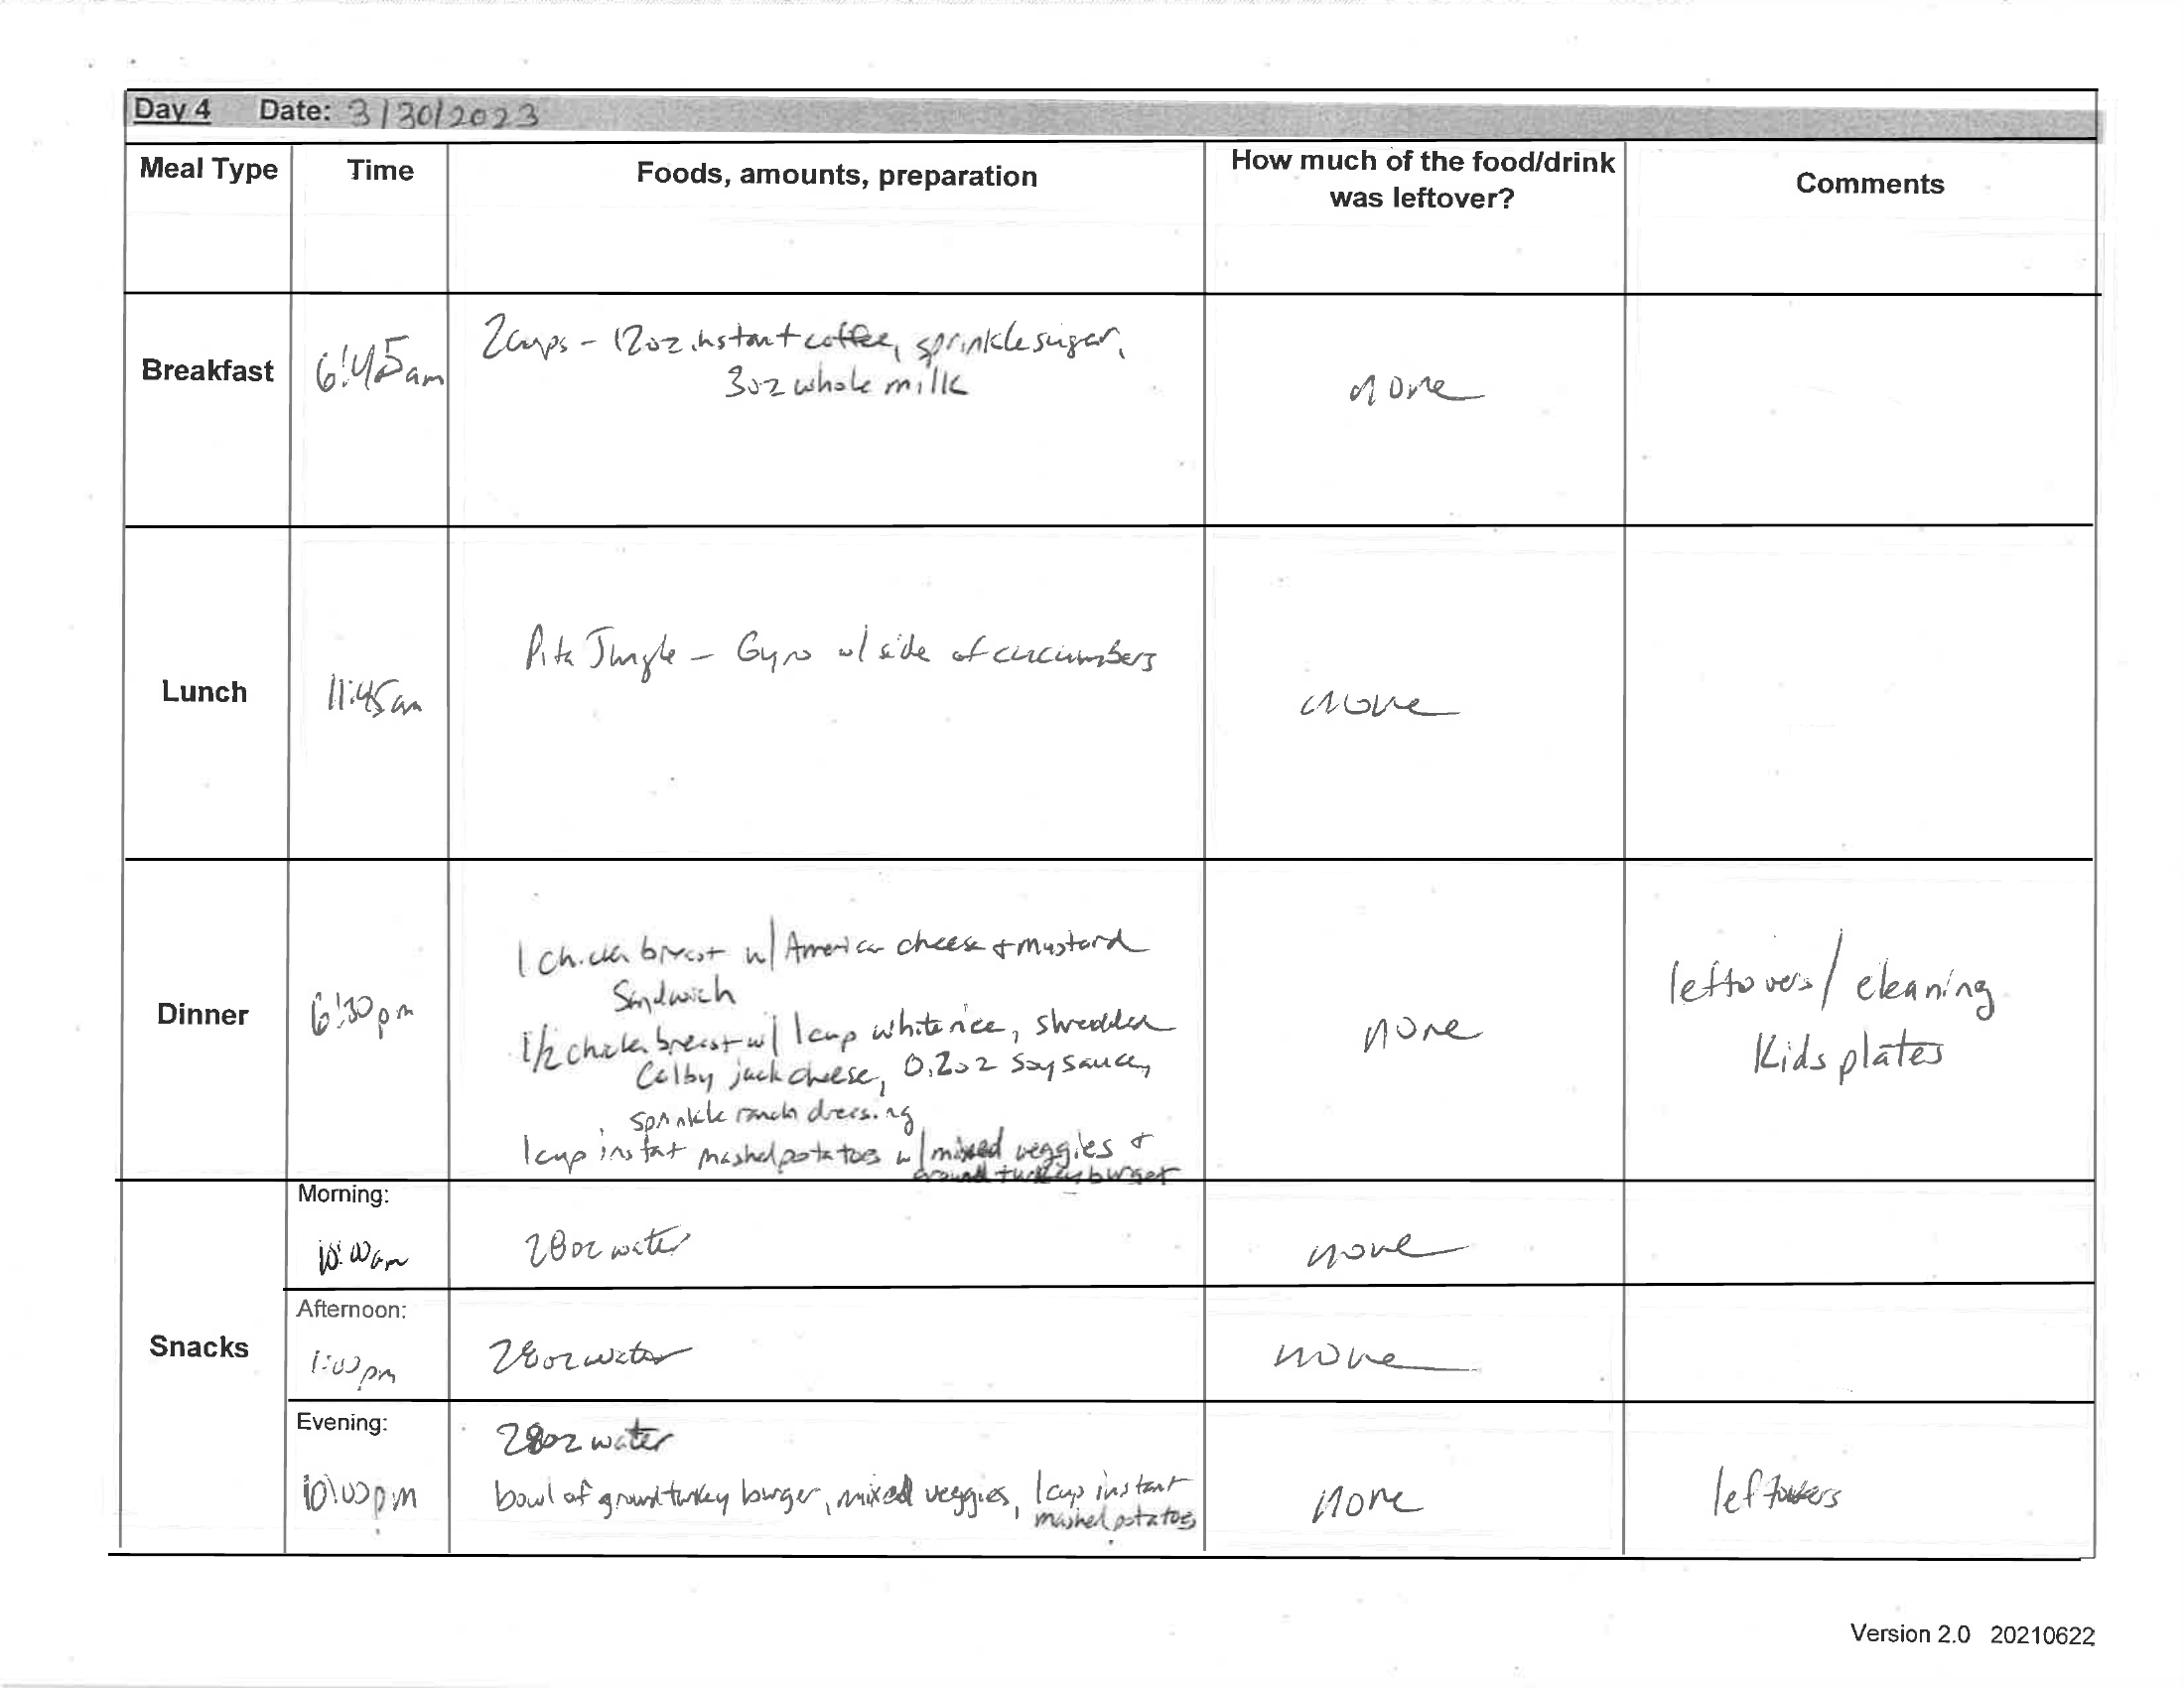 Day 4 Date: 3/30/2023
Meal Type Time Foods, amounts, preparation How much of the food/drink was leftover? Comments
Breakfast 6:45am 2cups - 12oz instant coffee, sprinkle sugar,
3oz whole milk
none
Lunch 11:45am Pita Jungle - Gyro w/ side of cucumbers
none
Dinner 6:30pm
1 chicken breast w/ American cheese + mustard
Sandwich
1/2 chicken breast w/ 1cup white rice, shredded
Colby jack cheese, 0.2oz soy sauce,
sprinkle ranch dressing
1cup instant mashed potatoes w/ mixed veggies +
ground turkey burger
none
leftovers/ cleaning
Kids plates
Snacks
Morning:
10:00am 28oz water none
Afternoon:
1:00pm 28oz water none
Evening:
10:00pm 28oz water
bowl of ground turkey burger, mixed veggies, 1cup instant
mashed potatoes
none leftovers
Version 2.0 20210622